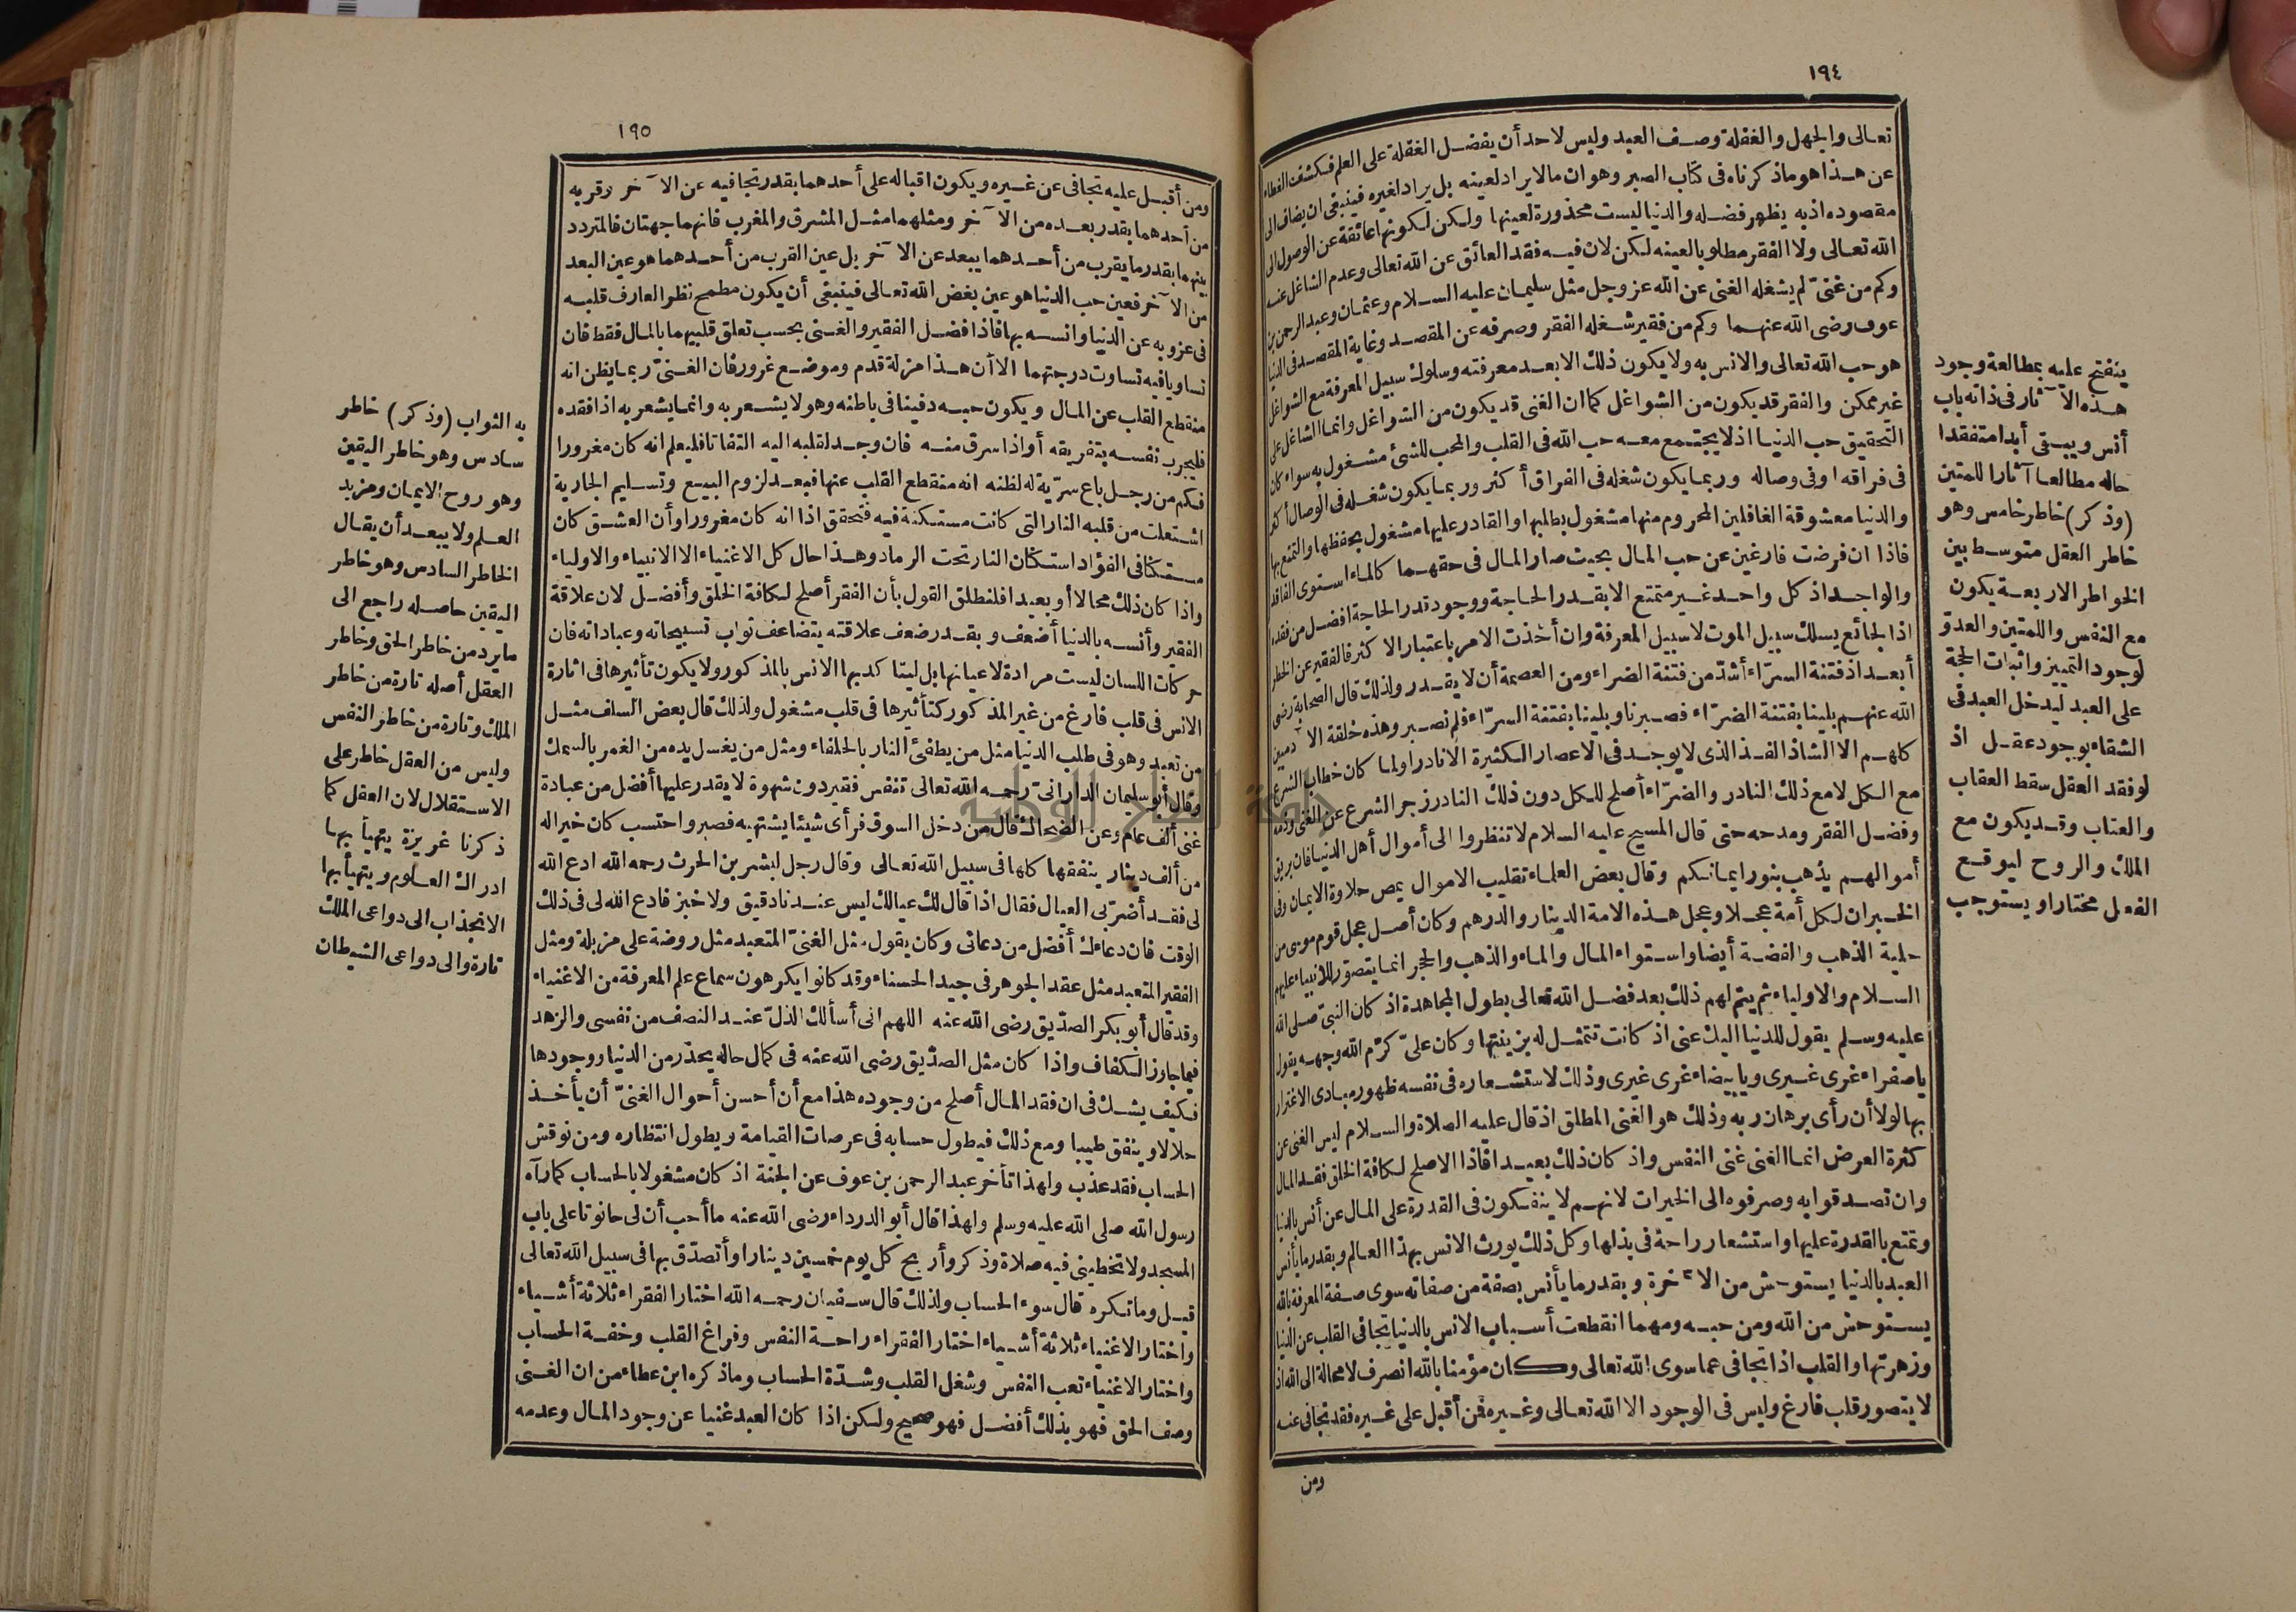 ١٩٤
تعالى والجهل والغفلة وصف العبد وليس لاحد أن يفضل الغفلة على العلم فكشف الغطاء
عن هذا هو ماذكرناه فى كتاب الصبر وهو ان مالا يراد لعينه بل يراد لغيره فينبغى ان يضاف الى
مقصوده اذ به يظهر فضله والدنيا ليست محذورة لعينها ولكن لكونها عائقة عن الوصول الى
الله تعالى ولا الفقر مطلوبا لعينه لكن لان فيه فقد العائق عن الله تعالى وعدم الشاغل عنه
وكم من غنىّ لم يشغله الغنى عن الله عز وجل مثل سليمان عليه السلام وعثمان وعبد الرحمن بن
عوف رضى الله عنهما وكم من فقير شغله الفقر وصرفه عن المقصد وغاية المقصد فى الدنيا
هو حب الله تعالى والانس به ولا يكون ذلك الا بعد معرفته وسلوك سبيل المعرفة مع الشواغل
غير ممكن والفقر قد يكون من الشواغل كما ان الغنى قد يكون من الشواغل وانما الشاغل على
التحقيق حب الدنيا اذ لا يجتمع معه حب الله فى القلب والمحب للشئ مشغول به سواء كان
فى فراقه او فى وصاله وربما يكون شغله فى الفراق أكثر وربما يكون شغله فى الوصال أكثر
والدنيا معشوقة الغافلين المحروم منها مشغول بطلبها والقادر عليها مشغول بحفظها والتمتع بها
فاذا ان فرضت فارغين عن حب المال بحيث صار المال فى حقهما كالماء استوى الفاقد
والواجد اذ كل واحد غير متمتع الا بقدر الحاجة ووجود قدر الحاجة افضل من فقده
اذ الجائع يسلك سبيل الموت لا سبيل المعرفة وان أخذت الامر باعتبار الاكثر فالفقير عن الخطر
أبعد اذ فتنة السرّاء أشدّ من فتنة الضراء ومن العصمة أن لا يقدر ولذلك قال الصحابة رضى
الله عنهم بلينا بفتنة الضرّاء فصبرنا وبلينا بفتنة السرّاء فلم نصبر وهذه خلقة الآدميين
كلهم الا الشاذ الفذ الذى لا يوجد فى الاعصار الكثيرة الا نادرا ولما كان خطاب الشرع
مع الكل لا مع ذلك النادر والضرّاء أصلح للكل دون ذلك النادر زجر الشرع عن الغنى وذمه
وفضل الفقر ومدحه حتى قال المسيح عليه السلام لا تنظروا الى أموال أهل الدنيا فان بريق
أموالهم يذهب بنور ايمانكم وقال بعض العلماء تقليب الاموال يمص حلاوة الايمان وفى
الخبر ان لكل أمة عجلا وعجل هذه الامة الدينار والدرهم وكان أصل عجل قوم موسى من
حلية الذهب والفضة أيضا واستواء المال والماء والذهب والحجر انما يتصوّر للانبياء عليهم
السلام والاولياء ثم يتم لهم ذلك بعد فضل الله تعالى بطول المجاهدة اذ كان النبىّ صلى الله
عليه وسلم يقول للدنيا اليك عنى اذ كانت تتمثل له بزينتها وكان علىّ كرّم الله وجهه يقول
ياصفراء غرى غيرى ويابيضاء غرى غيرى وذلك لاستشعاره فى نفسه ظهور مبادى الاغترار
بها لولا أن رأى برهان ربه وذلك هو الغنى المطلق اذ قال عليه الصلاة والسلام ليس الغنى عن
كثرة العرض انما الغنى غنى النفس واذ كان ذلك بعيدا فاذا الاصلح لكافة الخلق فقد المال
وان تصدقوا به وصرفوه الى الخيرات لانهم لا ينفكون فى القدرة على المال عن أنس بالدنيا
وتمتع بالقدرة عليها واستشعار راحة فى بذلها وكل ذلك يورث الانس بهذا العالم وبقدر ما يأنس
العبد بالدنيا يستوحش من الآخرة وبقدر ما يأنس بصفة من صفاته سوى صفة المعرفة بالله
يستوحش من الله ومن حبه ومهما انقطعت أسباب الانس بالدنيا تجافى القلب عن الدنيا
وزهرتها والقلب اذا تجافى عما سوى الله تعالى وكان مؤمنا بالله انصرف لا محالة الى الله اذ
لا يتصور قلب فارغ وليس فى الوجود الا الله تعالى وغيره فمن أقبل على غيره فقد تجافى عنه
ومن
ينفتح عليه بمطالعة وجود
هذه الآثار فى ذاته باب
أنس ويبقى أبدا متفقدا
حاله مطالعا آثارا للمتين
(وذكر) خاطر خامس وهو
خاطر العقل متوسط بين
الخواطر الاربعة يكون
مع النفس واللمتين والعدوّ
لوجود التمييز واثبات الحجة
على العبد ليدخل العبد فى
الشقاء بوجود عقل اذ
لو فقد العقل سقط العقاب
والعتاب وقد يكون مع
الملك والروح ليوقع
الفعل مختارا ويستوجب
١٩٥
ومن أقبل عليه تجافى عن غيره ويكون اقباله على أحدهما بقدر تجافيه عن الآخر وقربه
من أحدهما بقدر بعده من الآخر ومثلهما مثل المشرق والمغرب فانهما جهتان فالمتردد
بينهما بقدر ما يقرب من أحدهما يبعد عن الآخر بل عين القرب من أحدهما هو عين البعد
من الآخر فعين حب الدنيا هو عين بغض الله تعالى فينبغى أن يكون مطمح نظر العارف قلبه
فى عزوبه عن الدنيا وانسه بها فاذا فضل الفقير والغنى بحسب تعلق قلبيهما بالمال فقط فان
تساويا فيه تساوت درجتهما الا أن هذا مزلة قدم وموضع غرور فان الغنىّ ربما يظن انه
منقطع القلب عن المال ويكون حبه دفينا فى باطنه وهو لا يشعر به وانما يشعر به اذا فقده
فليجرب نفسه بتفريقه أو اذا سرق منه فان وجد لقلبه اليه التفاتا فليعلم انه كان مغرورا
فكم من رجل باع سرّية له لظنه انه منقطع القلب عنها فبعد لزوم البيع وتسليم الجارية
اشتعلت من قلبه النار التى كانت مستكنة فيه فتحقق اذا انه كان مغرورا وأن العشق كان
مستكنا فى الفؤاد استكنان النار تحت الرماد وهذا حال كل الاغنياء الا الانبياء والاولياء
واذا كان ذلك محالا أو بعيدا فلنطلق القول بأن الفقر أصلح لكافة الخلق وأفضل لان علاقة
الفقير وأنسه بالدنيا أضعف وبقدر ضعف علاقته يتضاعف ثواب تسبيحاته وعباداته فان
حركات اللسان ليست مرادة لاعيانها بل ليتأكد بها الانس بالمذكور ولا يكون تأثيرها فى اثارة
الانس فى قلب فارغ من غير المذكور كتأثيرها فى قلب مشغول ولذلك قال بعض السلف مثل
من تعبد وهو فى طلب الدنيا مثل من يطفئ النار بالحلفاء ومثل من يغسل يده من الغمر بالسمك
وقال أبو سليمان الدارانىّ رحمه الله تعالى تنفس فقير دون شهوة لا يقدر عليها أفضل من عبادة
غنى ألف عام وعن الضحاك قال من دخل السوق فرأى شيئا يشتهيه فصبر واحتسب كان خيرا له
من ألف دينار ينفقها كلها فى سبيل الله تعالى وقال رجل لبشر بن الحرث رحمه الله ادع الله
لى فقد أضرّ بى العيال فقال اذا قال لك عيالك ليس عندنا دقيق ولا خبز فادع الله لى فى ذلك
الوقت فان دعاءك أفضل من دعائى وكان يقول مثل الغنىّ المتعبد مثل روضة على مزبلة ومثل
الفقير المتعبد مثل عقد الجوهر فى جيد الحسناء وقد كانوا يكرهون سماع علم المعرفة من الاغنياء
وقد قال أبو بكر الصدّيق رضى الله عنه اللهم انى أسألك الذلّ عند النصف من نفسى والزهد
فيما جاوز الكفاف واذا كان مثل الصدّيق رضى الله عنه فى كمال حاله يحذر من الدنيا ووجودها
فكيف يشك فى ان فقد المال أصلح من وجوده هذا مع أن أحسن أحوال الغنىّ أن يأخذ
حلالا وينفق طيبا ومع ذلك فيطول حسابه فى عرصات القيامة ويطول انتظاره ومن نوقش
الحساب فقد عذب ولهذا تأخر عبد الرحمن بن عوف عن الجنة اذ كان مشغولا بالحساب كما رآه
رسول الله صلى الله عليه وسلم ولهذا قال أبو الدرداء رضى الله عنه ما أحب أن لى حانوتا على باب
المسجد ولا تخطينى فيه صلاة وذكر وأربح كل يوم خمسين دينارا وأتصدّق بها فى سبيل الله تعالى
قيل وما تكره قال سوء الحساب ولذلك قال سفيان رحمه الله اختار الفقراء ثلاثة أشياء
واختار الاغنياء ثلاثة أشياء اختار الفقراء راحة النفس وفراغ القلب وخفة الحساب
واختار الاغنياء تعب النفس وشغل القلب وشدّة الحساب وماذكره ابن عطاء من ان الغنى
وصف الحق فهو بذلك أفضل فهو صحيح ولكن اذا كان العبد غنيا عن وجود المال وعدمه
به الثواب (وذكر) خاطر
سادس وهو خاطر اليقين
وهو روح الايمان ومزيد
العلم ولا يبعد أن يقال
الخاطر السادس وهو خاطر
اليقين حاصله راجع الى
ما يرد من خاطر الحق وخاطر
العقل أصله تارة من خاطر
الملك وتارة من خاطر النفس
وليس من العقل خاطر على
الاستقلال لان العقل كما
ذكرنا غريزة يتهيأ بها
ادراك العلوم ويتهيأ بها
الانجذاب الى دواعى الملك
تارة والى دواعى الشيطان